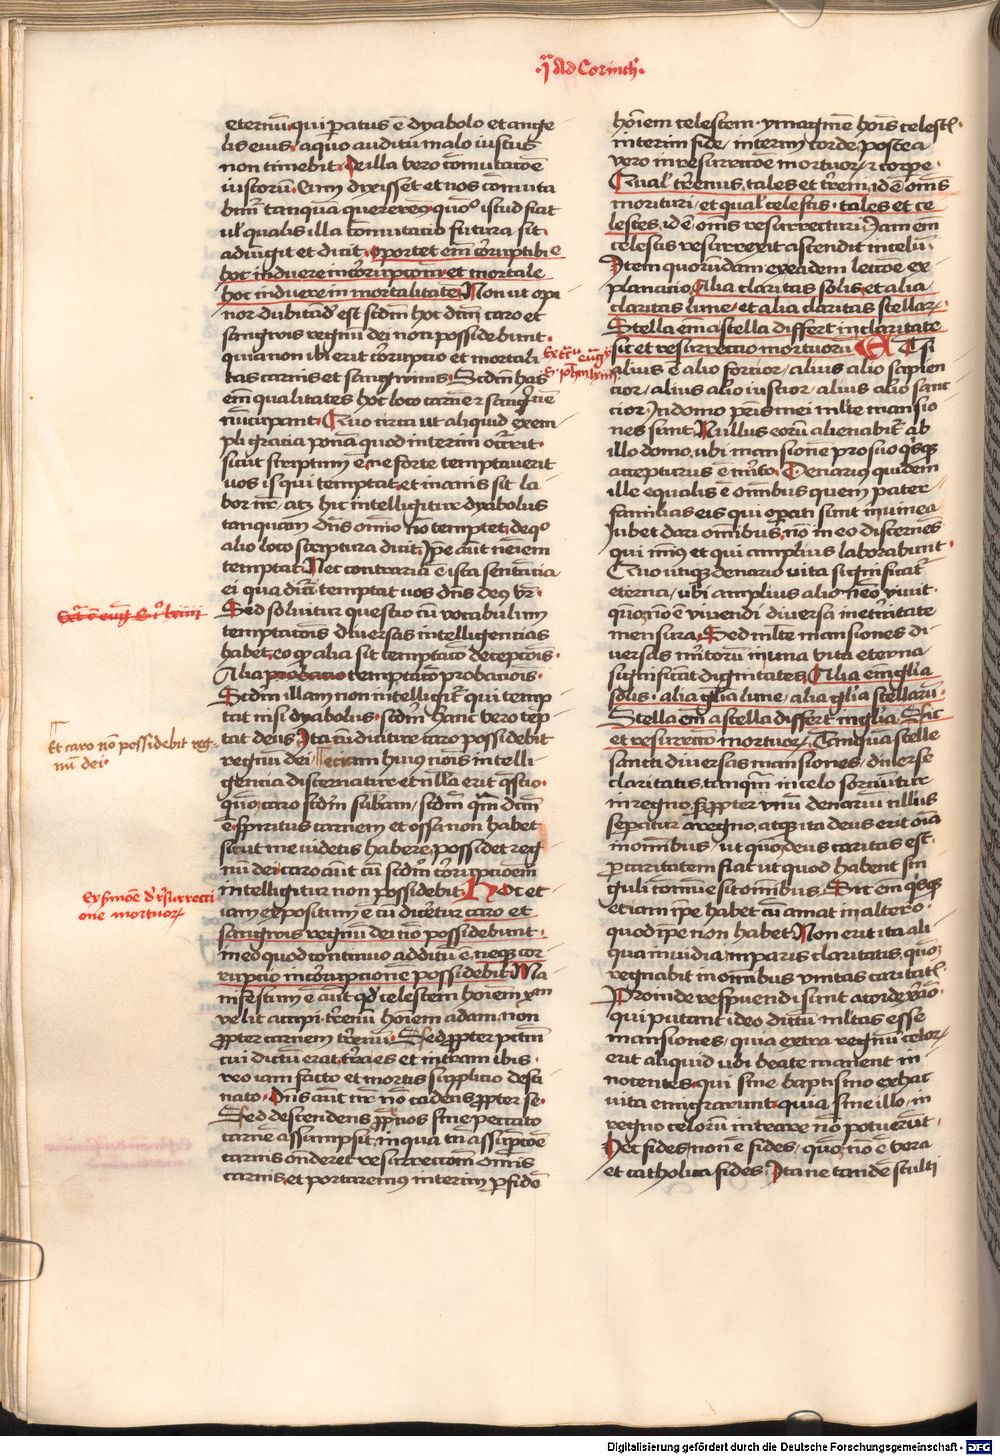 ·I· Ad Corinth·
eternū qui paratus ē dyabolo et ange
lis eius· a quo auditu malo iustus
non timebit· De illa vero cōmutacōe
iustorū· Cum dixisset et nos cōmuta
bimr̄ tanquā quereremꝰ quōº istud fiat
ul̄ qualis illa cōmutatio futura sit·
adiūgit et dicit· oportet em̄ corruptibile
hoc induere incorrupcōem et mortale
hoc induere inmortalitatē· Non ut opi
nor dubitādū est scdm̄ hoc dictū caro et
sanguis regnū dei non possidebunt·
quia non ibi erit corrupcio et mortali
tas carnis et sanguinis· Scdm̄ has
em̄ qualitates hoc loco carnē et sanguinē
nūcupant· Quo circa ut aliquid exem
pli gracia ponā quod interim occurrit·
sicut scriptum ē ne forte temptauerit
uos is qui temptat et inanis sit la
bor nr̄· hic intelligitur dyabolus
tanquam dn̄s omīo nō temptet· de qº
alio loco scriptura dicit· Ipē aūt nēinem
temptat· Nec contraria ē ista sentencia
ei qua dictū temptat uos dn̄s deꝰ vr̄·
Sed soluitur questio cū vocabulum
temptacōnis diuersas intelligencias
habet· eo qꝫ alia sit temptacō decepcōis·
Alia probacio temptacō probacōnis·
Scdm̄ illam non intelligit̄ qui temp
tat nisi dyabolus· scdm̄ hanc vero tēp
tat deus· Ita cū dicitur caro possidebit
regnū dei etiam huius nois intelli
gencia discernatur et nulla erit q̄stio·
quō caro scdm̄ subāam scdm̄ q̄m dictū
ē· spiritus carnem et ossa non habet
sicut me videtis habere possidet reg
nū dei· caro aūt cū scdm̄ corrupcioēm
intelligitur non possidebit· Hoc et
iam expositum ē cū diceretur caro et
sanguis regnū dei nō possidebunt·
in eo quod continuo additū ē· neqꝫ cor
rupcio incorrupcionē possidebit· Ma
nifestum ē aūt qd̄ celestem hoīem xp̄m
velit accipi· trēnū hoīem adam· non
ꝓpter carnem trēnū· Sed ꝓpter pctm̄
cui dictū erat· tr̄a es et in trām ibis·
reo iam facto et mortis supplicio desti
nato· Dn̄s aūt nr̄ nō cadens ꝓpter se·
Sed descendens ꝓpter nos sine peccato
carnē assumpsit· in qua cū assūpcōe
carnis ondēret resurreccōem omīs
carnis et portaremꝰ interim ꝑ fidē
Et caro nō possidebit reg-
nū dei·
ex smōe de resurrecci
one mortuoꝝ
hoīem celestem· ymaginē hoīs celest̄·
interim fide/ interim corde/ postea
vero in resurreccōe mortuoꝝ et corpe·
Qual̄ trēnus tales et trēni· id ē om̄s
morituri/ et qual̄ celestis· tales et ce
lestes· id ē om̄s resurrecturi· Iam em̄
celestis resurrexit ascendit in celū·
Item quorundam ex eadem lectōe ex
planacio· Alia claritas solis et alia
claritas lune· et alia claritas stellaꝝ·
Stella em̄ a stella differt in claritate
sic et resurreccio mortuorū· At si
alius ē alio fortior/ alius alio sapien
cior/ alius alio iustior/ alius alio sanc
tior· In domo pr̄is mei mlt̄e mansio
nes sunt· Nullus eorū alienabit̄ ab
illo domo· ubi mansionē pro suo q̄sqꝫ
accepturus ē mr̄ito· Denarius quidem
ille equalis ē omībus quem pater
familias eis qui opati sunt in uinea
iubet dari omībus· nō in eo discernēs
qui minꝰ et qui amplius laborabunt·
Quo utiqꝫ denario vita significat̄
eterna/ ubi amplius alio nēo viuit·
quō nō ē viuendi diuersa in eternitate
mensura· Sed mlt̄e mansiones di
uersas mr̄itorū in una vita eterna
significāt dignitates· Alia em̄ gl̄ia
solis· alia gl̄ia lune/ alia gl̄ia stellarū·
Stella em̄ a stella differt in gl̄ia· Sic
et resurreccō mortuoꝝ· Tanquā stelle
sancti diuersas mansiones/ diuerse
claritatis tanquā in celo sortiuntur
in regno· Sꝫ ꝓpter vnū denariū nullus
separatur a regno· atqꝫ ita deus erit oīa
in omībus/ ut quō deus caritas est·
ꝑ caritatem fiat ut quod habent sin
guli cōmūe sit omībus· Sic em̄ q̄sqꝫ
etiam ipē habet cū amat in altero·
quod ipē non habet· Non erit ita ali
qua inuidia inparis claritatis quō
regnabit in omībus vnitas caritat̄·
Proinde respuendi sunt a corde xp̄iāo·
qui putant ideo dictū ml̄tas esse
mansiones/ quia extra regnū celoꝝ
erit aliquid ubi beate manent in
nocentes· qui sine baptismo ex hac
vita emigrarunt· quia sine illo in
regno celorū intrare nō poterūt·
Hec fides non ē fides/ quō nō ē vera
et catholica fides· Itane tandē stulti
Digitalisierung gefördert durch die Deutsche Forschungsgemeinschaft - DFG